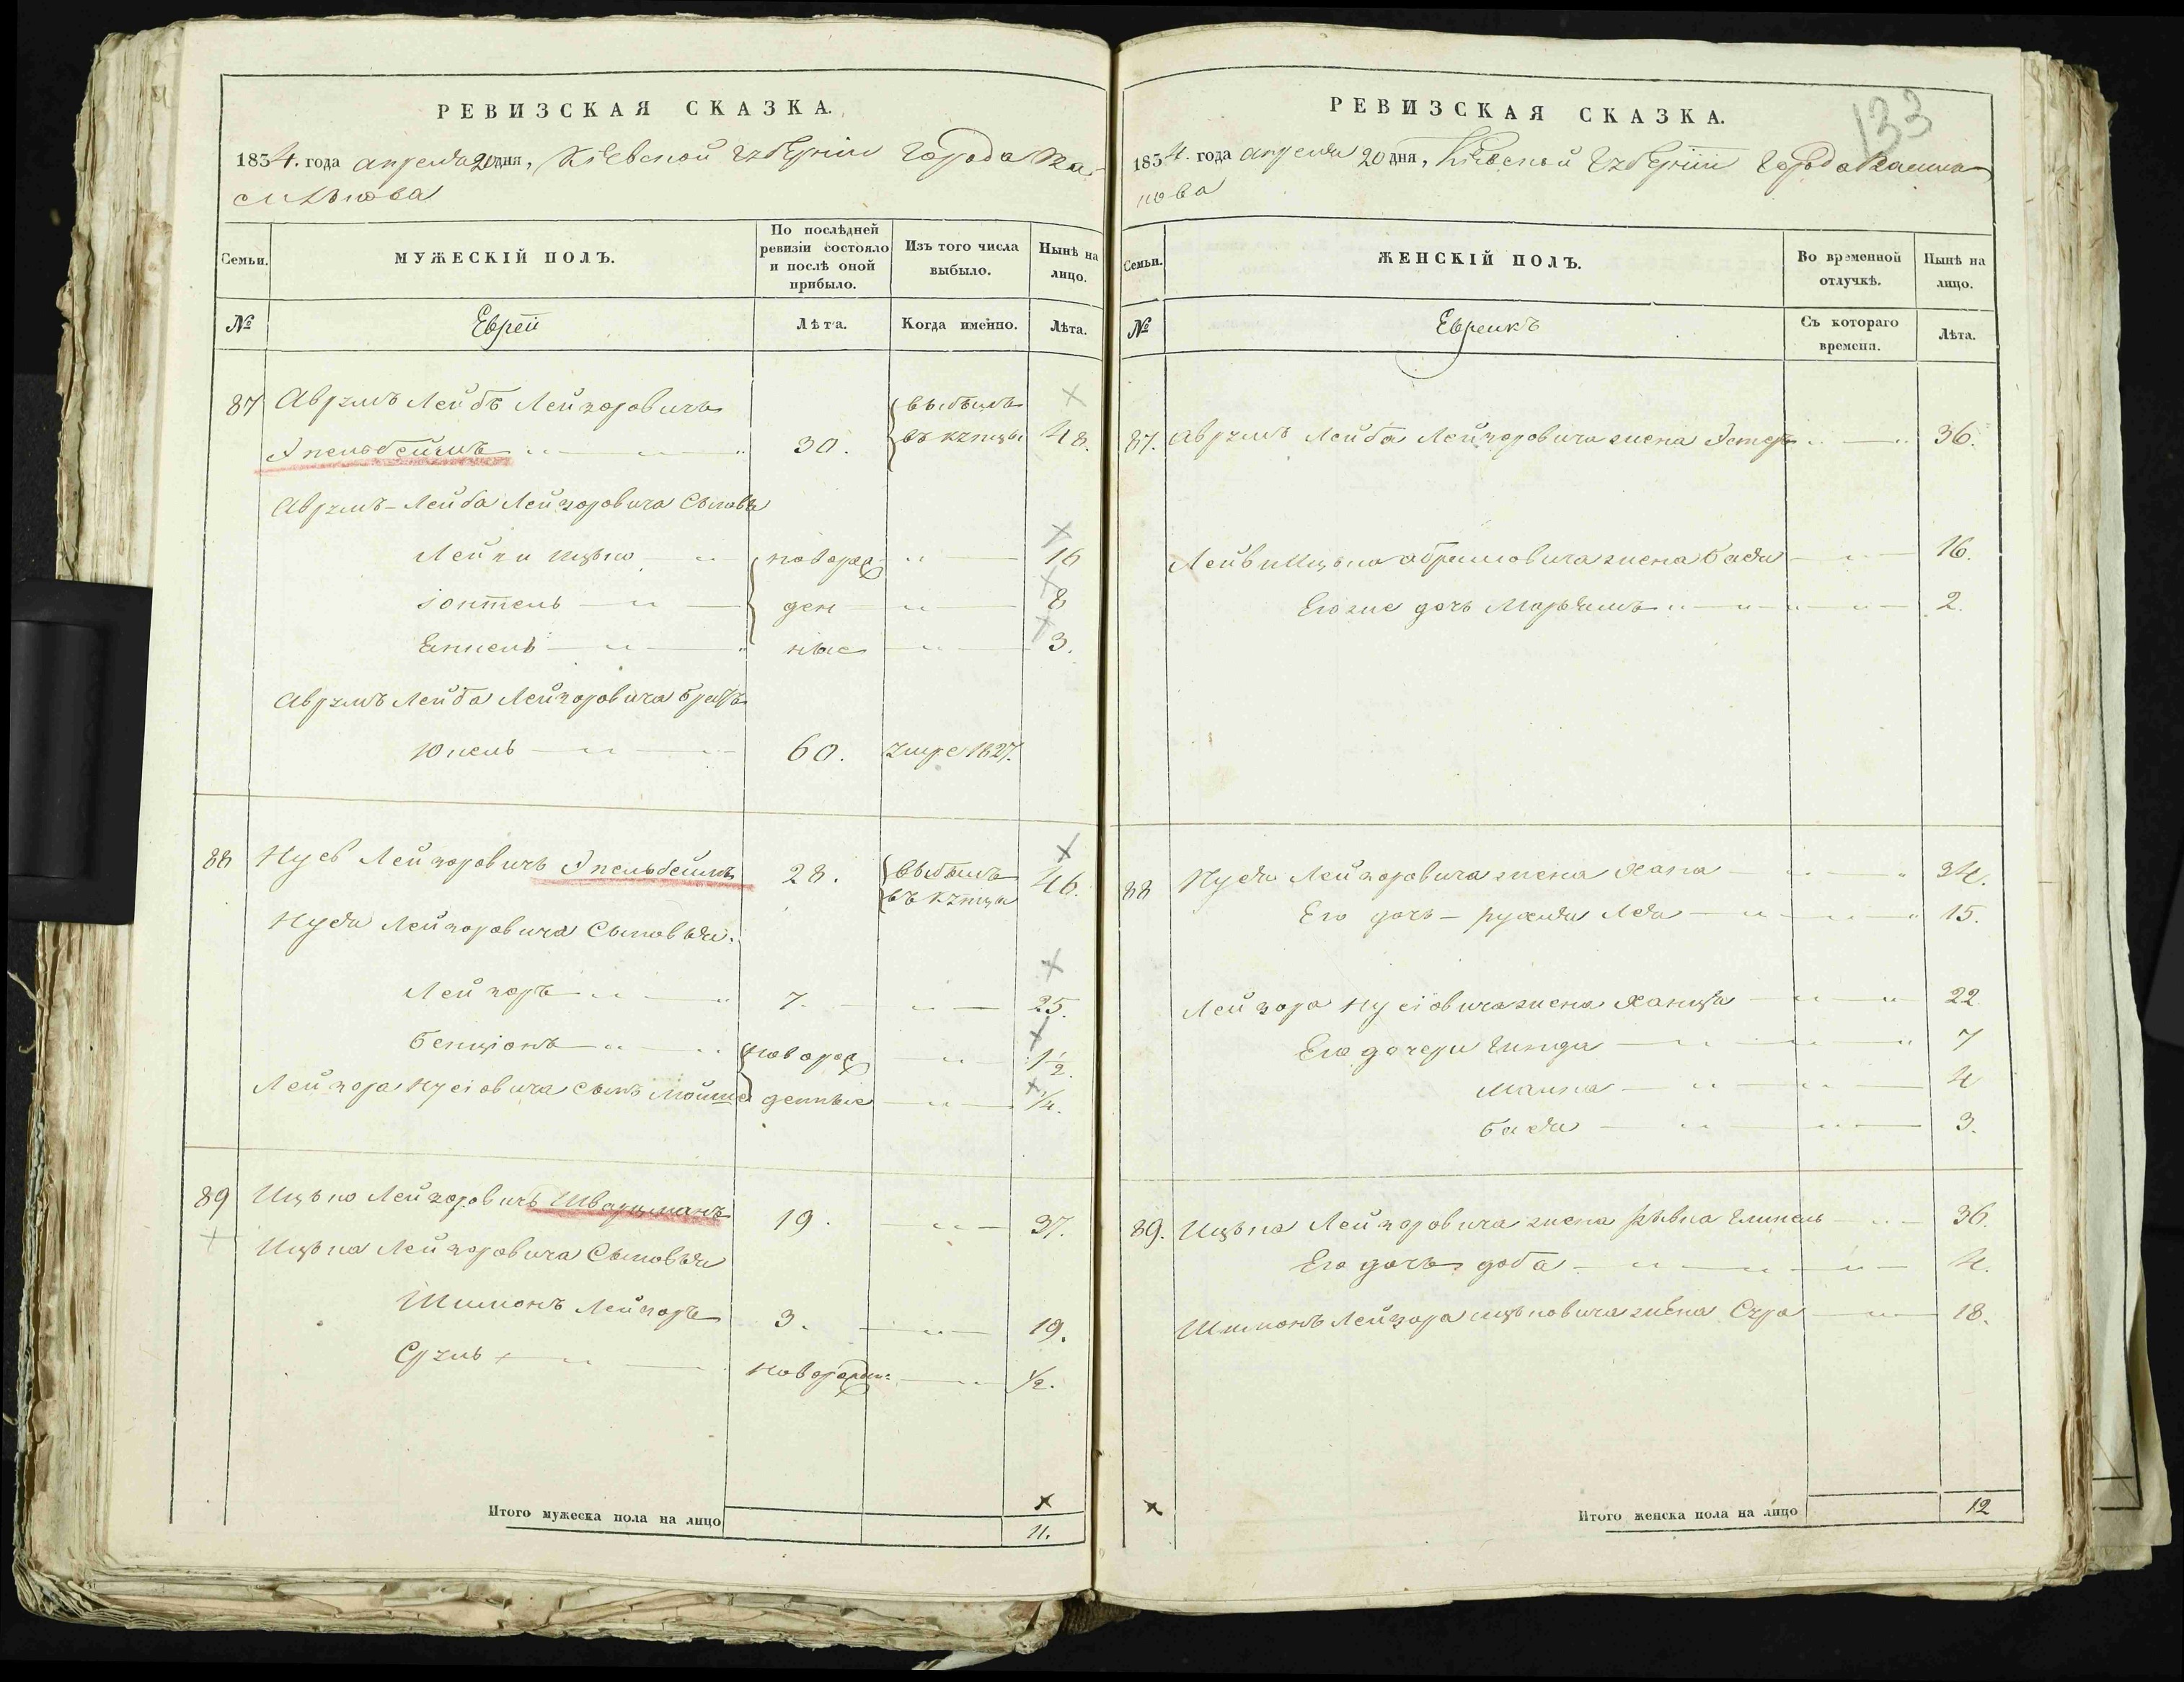 РЕВИЗСКАЯ СКАЗКА.
1834. года апреля 20 дня, Кіевской Губерніи Города Ва-
силькова
Семьи. МУЖЕСКІЙ ПОЛЪ. По послѣдней ревизіи состояло и послѣ оной прибыло. Изъ того числа выбыло. Нынѣ на лицо.
№ Евреи Лѣта. Когда именно. Лѣта.
87 Аврумъ Лейбъ Лейзоровичъ выбылъ
Эпельбеймъ 30. въ купцы 48.
Аврумъ-Лейба Лейзоровича Сыновья
Лейви Ицько новорож 16
Іонтель ден 8
ные 3.
Аврумъ Лейба Лейзоровича братъ
Юкель 60. умре 1827.
88 Нусь Лейзоровичъ Эпельбеймъ 28. выбылъ въ купцы 46.
Нуся Лейзоровича Сыновья:
Лейзоръ 7. 25.
Бенціонъ новорож 1 1/2
Лейзора Нусіовича сынъ Мойше денные 1/4.
89 Ицько Лейзоровичъ Шварцманъ 19. 37.
Ицька Лейзоровича Сыновья
Шимонъ Лейзоръ 3. 19.
Сруль новорожден: 1/2.
Итого мужеска пола на лицо 11.
РЕВИЗСКАЯ СКАЗКА.
133
1834. года апреля 20 дня, Кіевской Губерніи Города Василь
кова
Семьи. ЖЕНСКІЙ ПОЛЪ. Во временной отлучкѣ. Нынѣ на лицо.
№ Евреикъ Съ котораго времени. Лѣта.
87. Аврумъ Лейба Лейзоровича жена Эстеръ 36.
Лейви Ицька Абрамовича жена Бася 16.
Его же дочь Марьямъ 2.
88 Нуся Лейзоровича жена Хана 34.
Его дочь - Рухля Лея 15.
Лейзора Нусіовича жена Ханця 22.
Его дочери Гинда 7
Малка 4
Бася 3.
89. Ицька Лейзоровича жена Рывка 36.
Его дочь доба 4.
Шимонъ Лейзора ицьковича жена Сура 18.
Итого женска пола на лицо 12